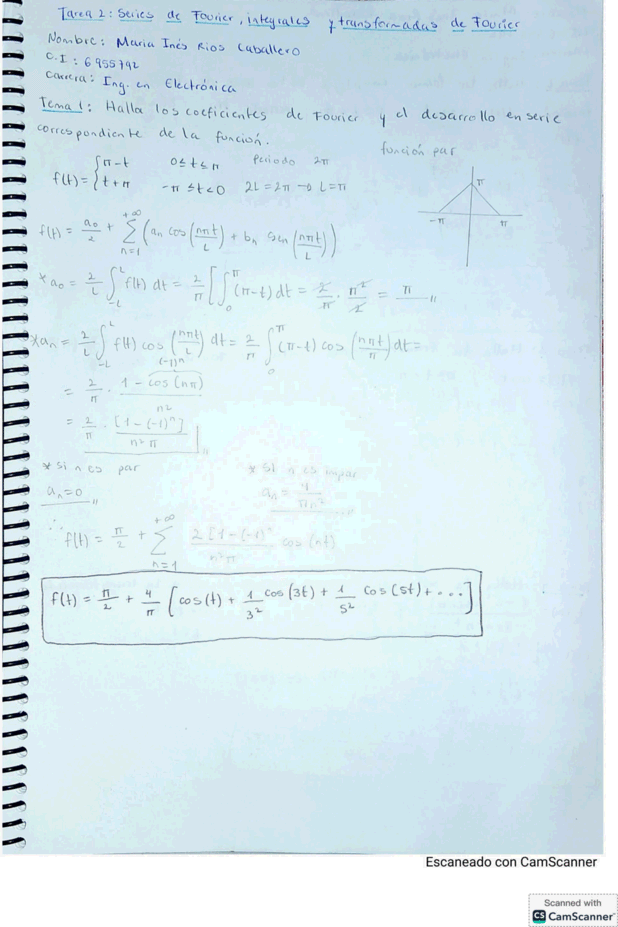 Tarea 2: Series de Fourier, integrales y transformadas de Fourier
Nombre: Maria Inés Rios Caballero
C.I: 6955792
Carrera: Ing. en Electrónica
Tema 1: Halla los coeficientes de Fourier y el desarrollo en serie
correspondiente de la función.
función par
f(t) = { π-t 0≤t≤π Periodo 2π
t+π -π≤t<0 2L=2π → L=π
π
-π π
f(t) = a₀/2 + +∞ Σ n=1 (aₙ cos(nπt/L) + bₙ sen(nπt/L))
* a₀ = 2/L ∫_-L^L f(t) dt = 2/π [∫_0^π (π-t) dt = 2/π · π²/2 = π //
* aₙ = 2/L ∫_-L^L f(t) cos(nπt/L) dt = 2/π ∫_0^π (π-t) cos(nπt/π) dt =
(-1)ⁿ
= 2/π · 1-cos(nπ)/n²
= 2/π · [1-(-1)ⁿ]/n²π //
* si n es par * si n es impar
aₙ=0 // aₙ = 4/πn² //
∴ f(t) = π/2 + +∞ Σ n=1 2[1-(-1)ⁿ]/n²π cos(nt)
f(t) = π/2 + 4/π [cos(t) + 1/3² cos(3t) + 1/5² cos(5t) + ...]
Escaneado con CamScanner
Scanned with
CS CamScanner